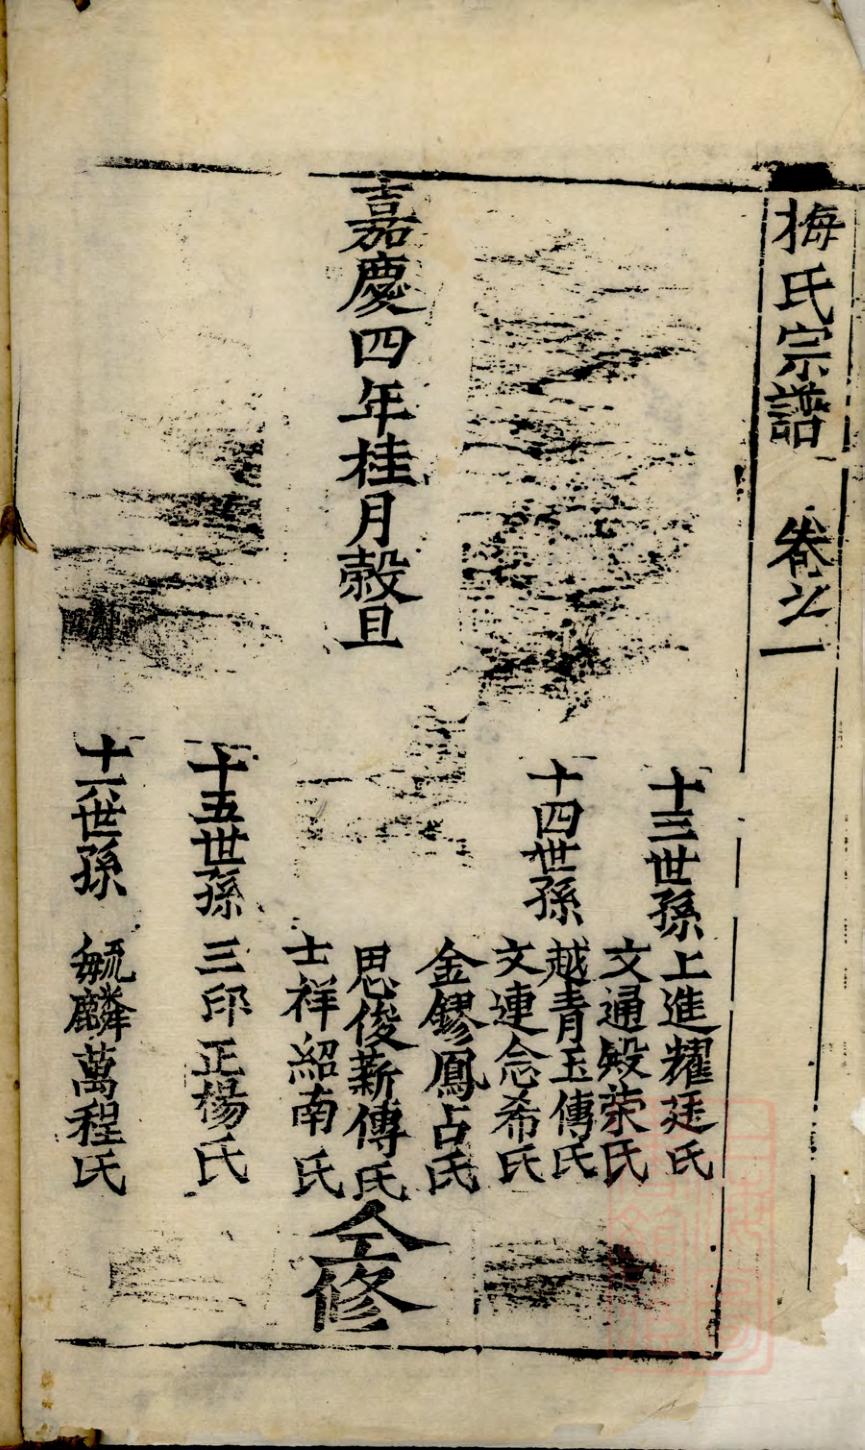 梅氏宗譜 卷之一
十三世孫
上進耀廷氏
文通殿荣氏
十四世孫
越青玉傳氏
文連念希氏
金鏐鳳占氏
嘉慶四年桂月穀旦
思俊薪傳氏
士祥紹南氏
仝修
十五世孫 三印正楊氏
十六世孫 毓麟萬程氏